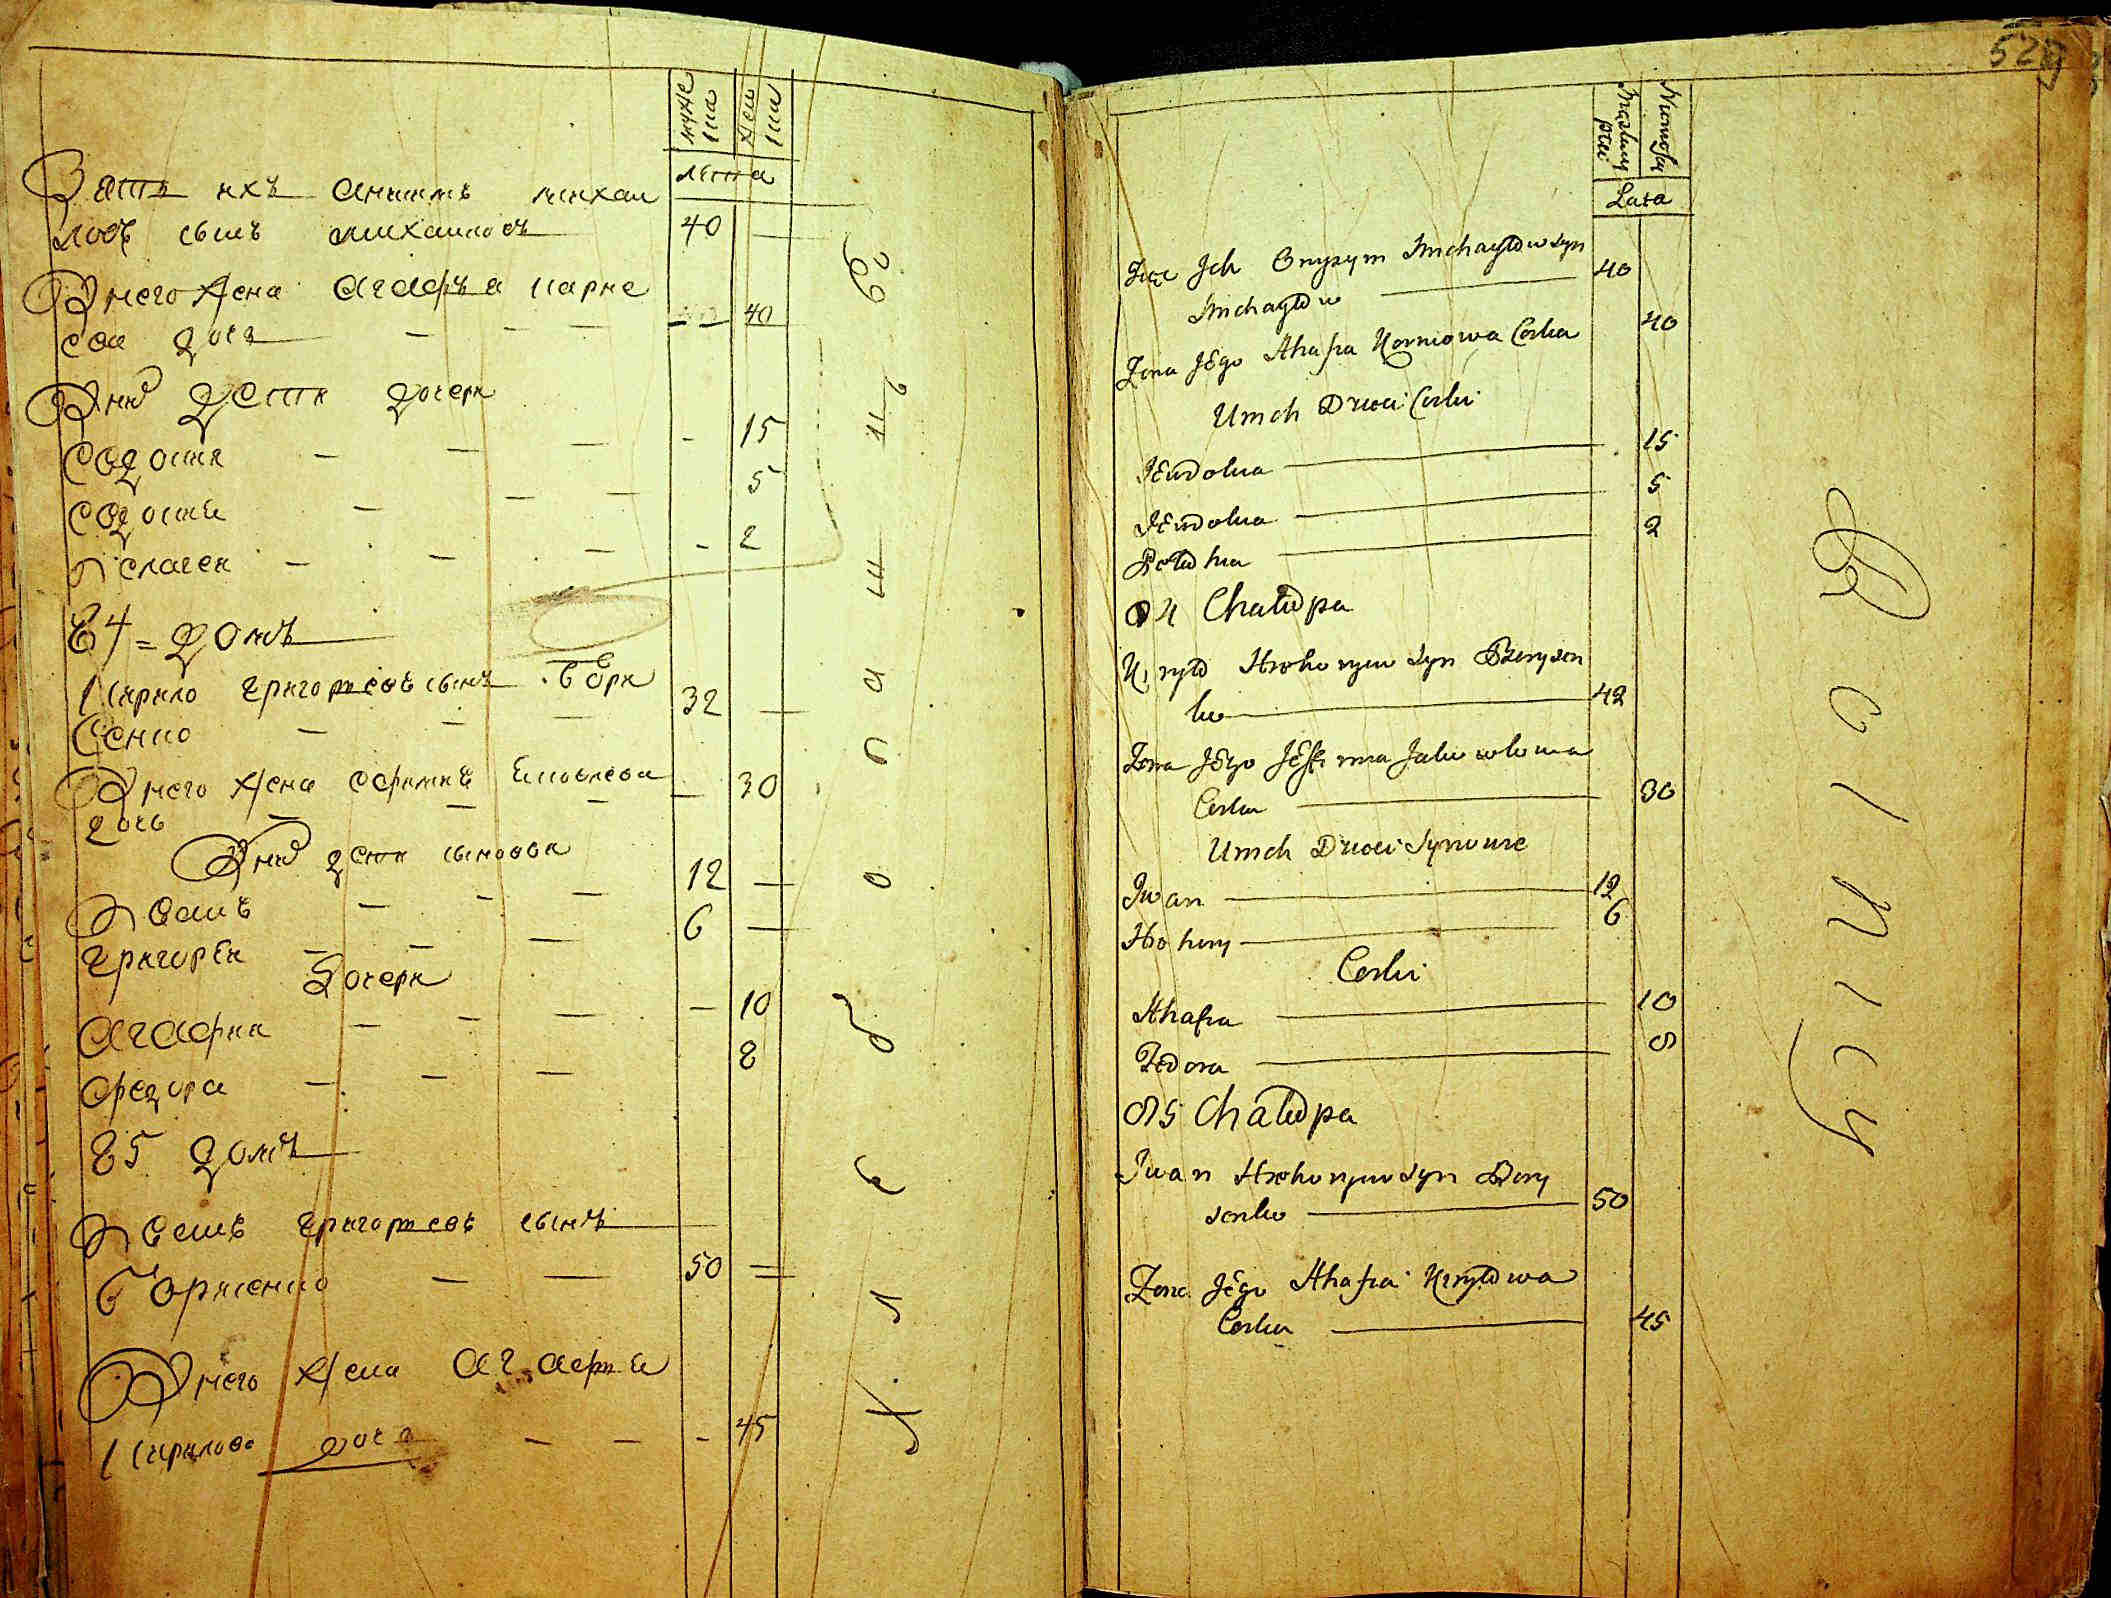 муже
ска
жен
ска
лета
Зять ихъ Анисимъ михаи
ловъ сынъ михаиловъ 40
У него жена Агафья карне
ева дочь 40
У них дети дочери
Євдокия 15
Євдокия 5
Пелагея 2
84 = домъ
Кирило григориевъ сынъ Бори
сенко 32
У него жена Ефимия
дочь 30
У них дети сыновья
Иванъ 12
григорей 6
дочери
Агафия 10
федора 8
85 домъ
Иванъ григориевъ сынъ
Борисенко 50
У него жена Агафия
Кирилова дочь 45
хлебопашецъ
527
Lata
Zięć Jch Onysym Michayłow syn
Michayłow 40
Zona Jego Ahafia Korniowa Corka 40
U nich Dzieci Corki
Jewdokia 15
Jewdokia 5
Pełahia 2
84 Chałupa
Kiryło Hrehoryiw syn Borysen
ko 42
Zona Jego Jefimia Jakowlowna
Corka 30
U nich Dzieci Synowie
Iwan 12
Hrehory 6
Corki
Ahafia 10
Fedora 8
85 Chałupa
Iwan Hrehoryiw syn Bory
senko 50
Zona Jego Ahafia Kiryłowa
Corka 45
Rolnicy